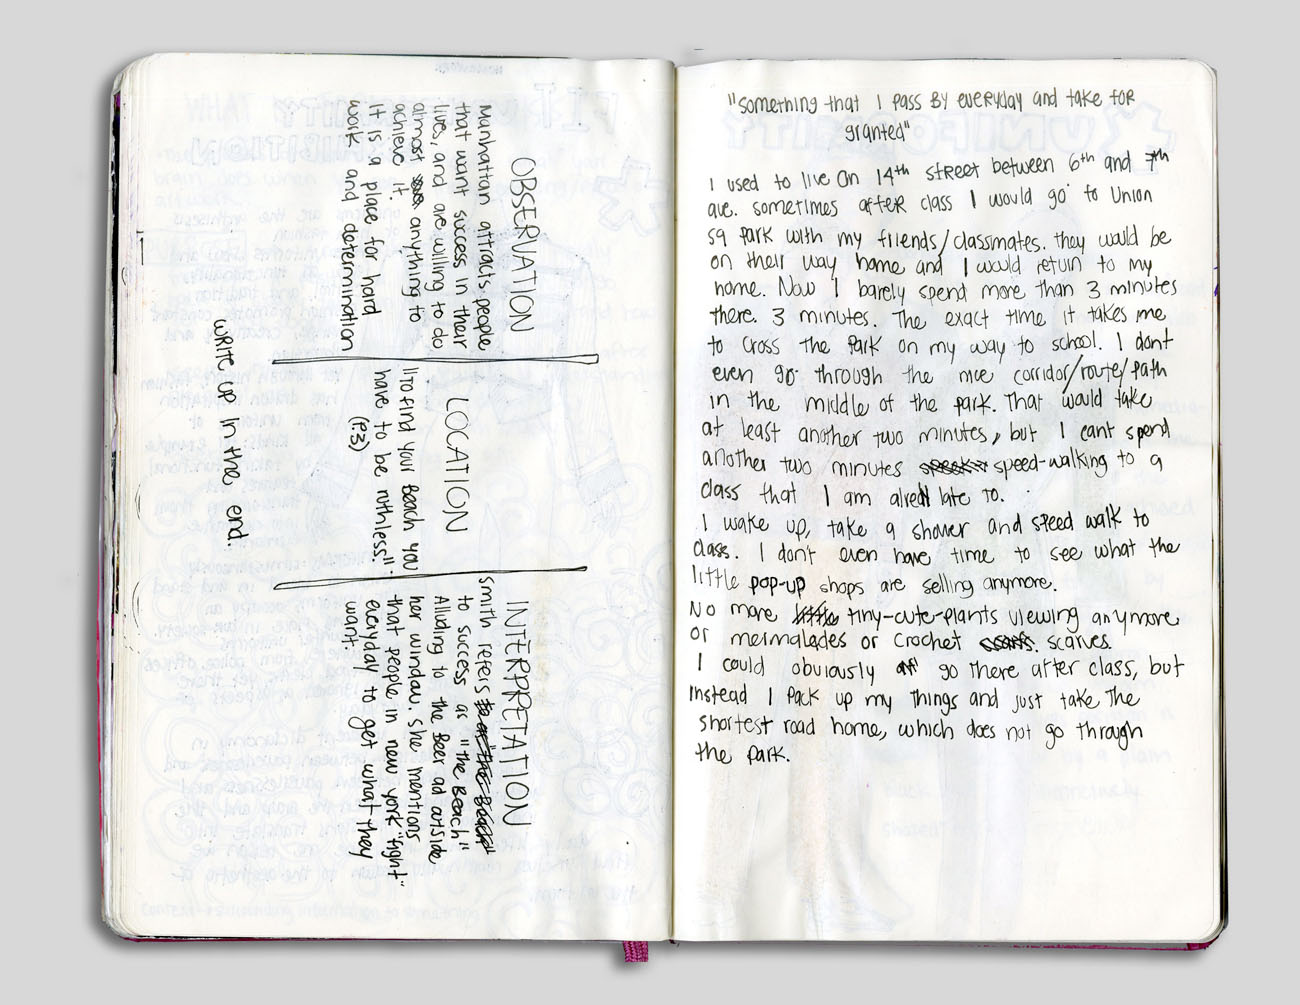 OBSERVATION
Manhattan attracts people
that want success in their
lives, and are willing to do
almost anything to
achieve it.
It is a place for hard
work and determination
LOCATION
"To find your Beach you
have to be ruthless".
(P.3)
INTERPRETATION
Smith refers
to success as "the Beach"
Alluding to the Beer ad outside
her window. She mentions
that people in new york "fight"
everyday to get what they
want.
write up in the end.
"Something that I pass By everyday and take for
granted"
I used to live on 14th street between 6th and 7th
ave. sometimes after class I would go to Union
sq park with my friends/classmates. they would be
on their way home and I would return to my
home. Now I barely spend more than 3 minutes
there. 3 minutes. The exact time it takes me
to cross the Park on my way to school. I dont
even go through the nice corridor/route/path
in the middle of the park. That would take
at least another two minutes, but I cant spend
another two minutes speed-walking to a
class that I am alredy late to.
I wake up, take a shower and speed walk to
class. I don't even have time to see what the
little pop-up shops are selling anymore.
No more tiny-cute-plants viewing anymore
or mermalades or crochet scarves.
I could obviously go there after class, but
instead I pack up my things and just take the
shortest road home, which does not go through
the park.